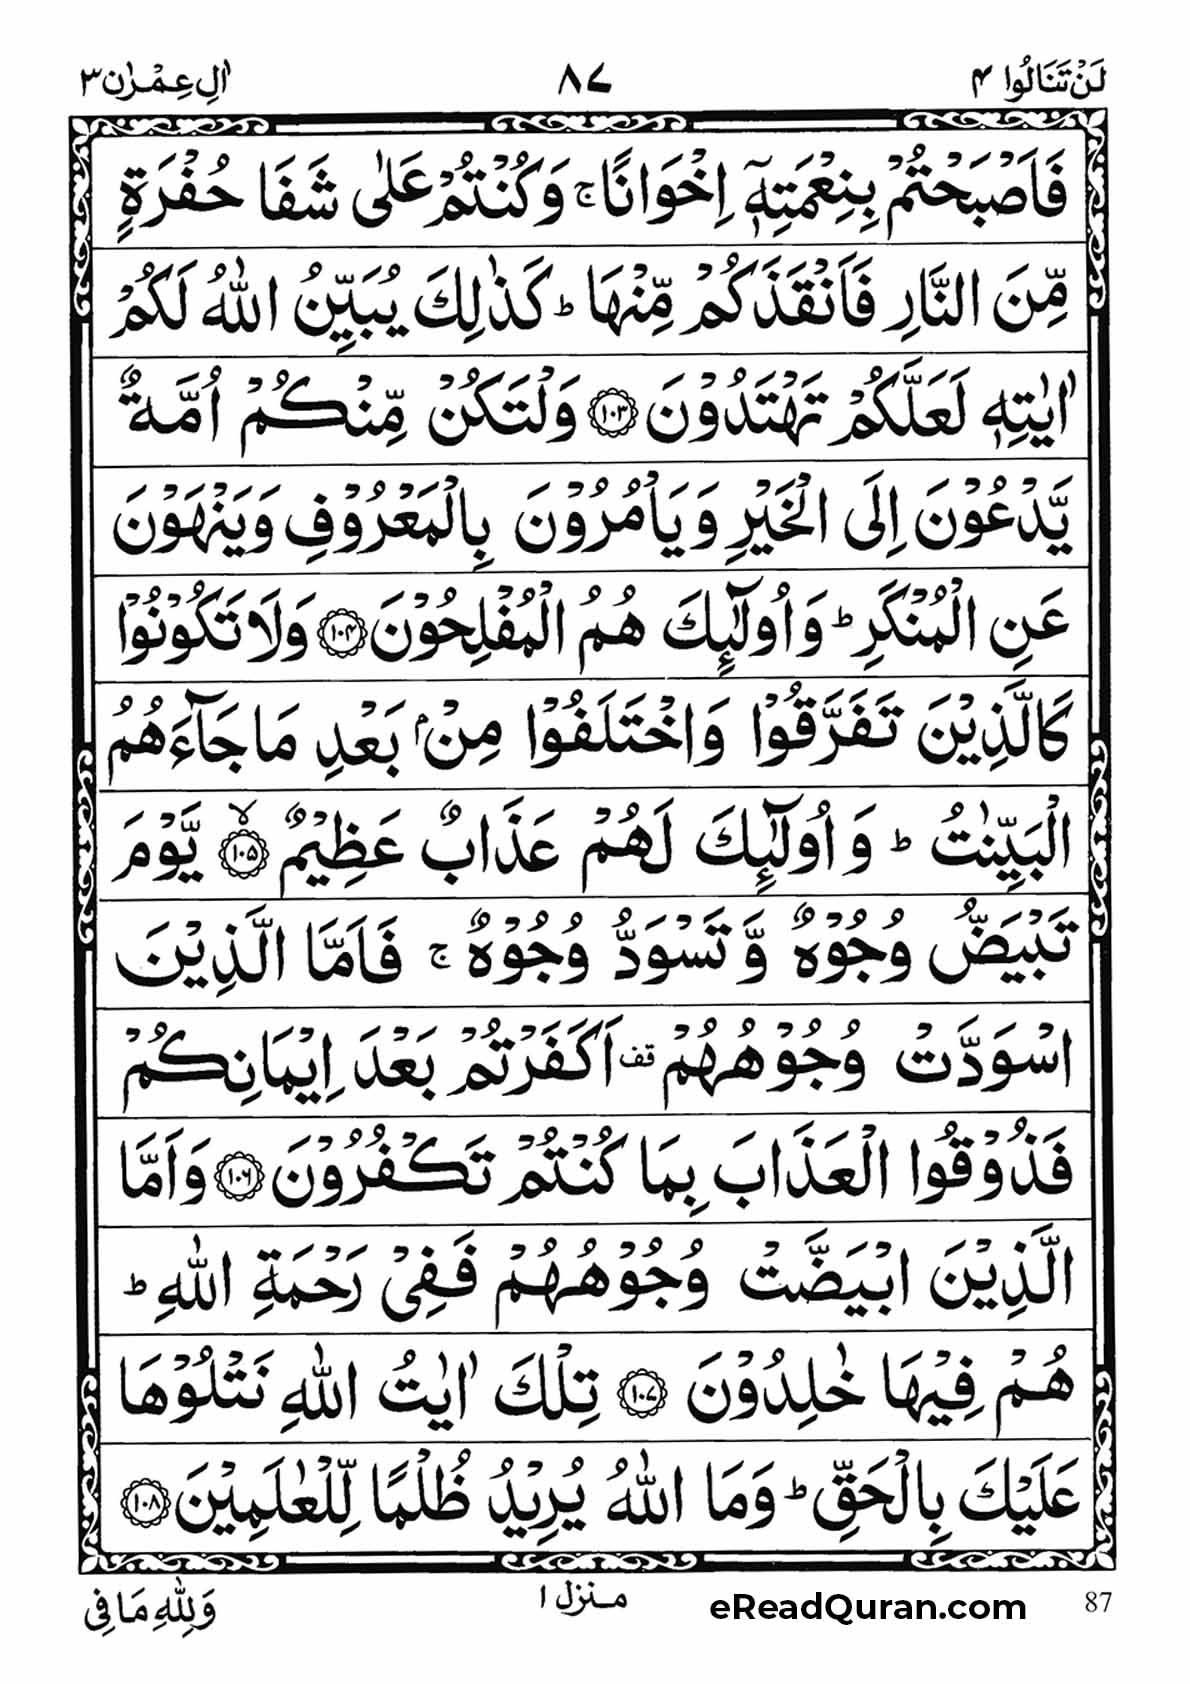 لَنۡ تَنَالُوا ۴ ۸۷ اٰلِ عِمۡرٰن ۳
فَاَصۡبَحۡتُمۡ بِنِعۡمَتِهٖۤ اِخۡوَانًا ۚ وَكُنۡتُمۡ عَلٰى شَفَا حُفۡرَةٍ
مِّنَ النَّارِ فَاَنۡقَذَكُمۡ مِّنۡهَا ؕ كَذٰلِكَ يُبَيِّنُ اللّٰهُ لَكُمۡ
اٰيٰتِهٖ لَعَلَّكُمۡ تَهۡتَدُوۡنَ ﴿۱۰۳﴾ وَلۡتَكُنۡ مِّنۡكُمۡ اُمَّةٌ
يَّدۡعُوۡنَ اِلَى الۡخَيۡرِ وَيَاۡمُرُوۡنَ بِالۡمَعۡرُوۡفِ وَيَنۡهَوۡنَ
عَنِ الۡمُنۡكَرِ ؕ وَاُولٰٓئِكَ هُمُ الۡمُفۡلِحُوۡنَ ﴿۱۰۴﴾ وَلَا تَكُوۡنُوۡا
كَالَّذِيۡنَ تَفَرَّقُوۡا وَاخۡتَلَفُوۡا مِنۡۢ بَعۡدِ مَا جَآءَهُمُ
الۡبَيِّنٰتُ ؕ وَاُولٰٓئِكَ لَهُمۡ عَذَابٌ عَظِيۡمٌ ۙ﴿۱۰۵﴾ يَّوۡمَ
تَبۡيَضُّ وُجُوۡهٌ وَّتَسۡوَدُّ وُجُوۡهٌ ۚ فَاَمَّا الَّذِيۡنَ
اسۡوَدَّتۡ وُجُوۡهُهُمۡ قف اَكَفَرۡتُمۡ بَعۡدَ اِيۡمَانِكُمۡ
فَذُوۡقُوا الۡعَذَابَ بِمَا كُنۡتُمۡ تَكۡفُرُوۡنَ ﴿۱۰۶﴾ وَاَمَّا
الَّذِيۡنَ ابۡيَضَّتۡ وُجُوۡهُهُمۡ فَفِىۡ رَحۡمَةِ اللّٰهِ ؕ
هُمۡ فِيۡهَا خٰلِدُوۡنَ ﴿۱۰۷﴾ تِلۡكَ اٰيٰتُ اللّٰهِ نَتۡلُوۡهَا
عَلَيۡكَ بِالۡحَقِّ ؕ وَمَا اللّٰهُ يُرِيۡدُ ظُلۡمًا لِّلۡعٰلَمِيۡنَ ﴿۱۰۸﴾
87 eReadQuran.com منزل ۱ وَلِلّٰهِ مَا فِى